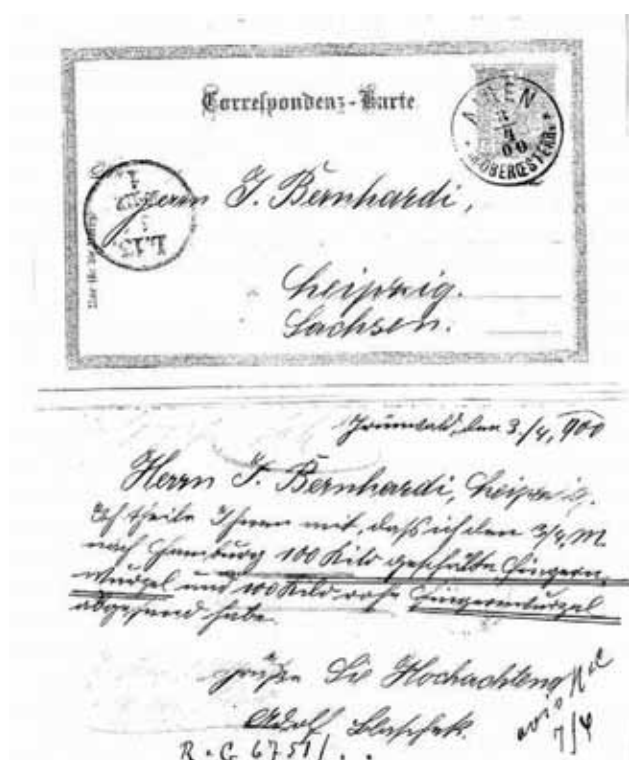 Correspondenz-Karte
3
4
00
OBEROESTERR.
Herrn J. Bernhardi,
L.13.
Leipzig.
Sachsen.
den 3./4. 900
Herrn J. Bernhardi, Leipzig.
Ich theile Ihnen mit, daß ich den 3/4. M.
nach Hamburg 100 Kilo geschälte
wurzel und 100 Kilo rohe
abgesend habe.
grüße Sie Hochachtung
Adolf Blaschek.
7/4
R.C 6751/..